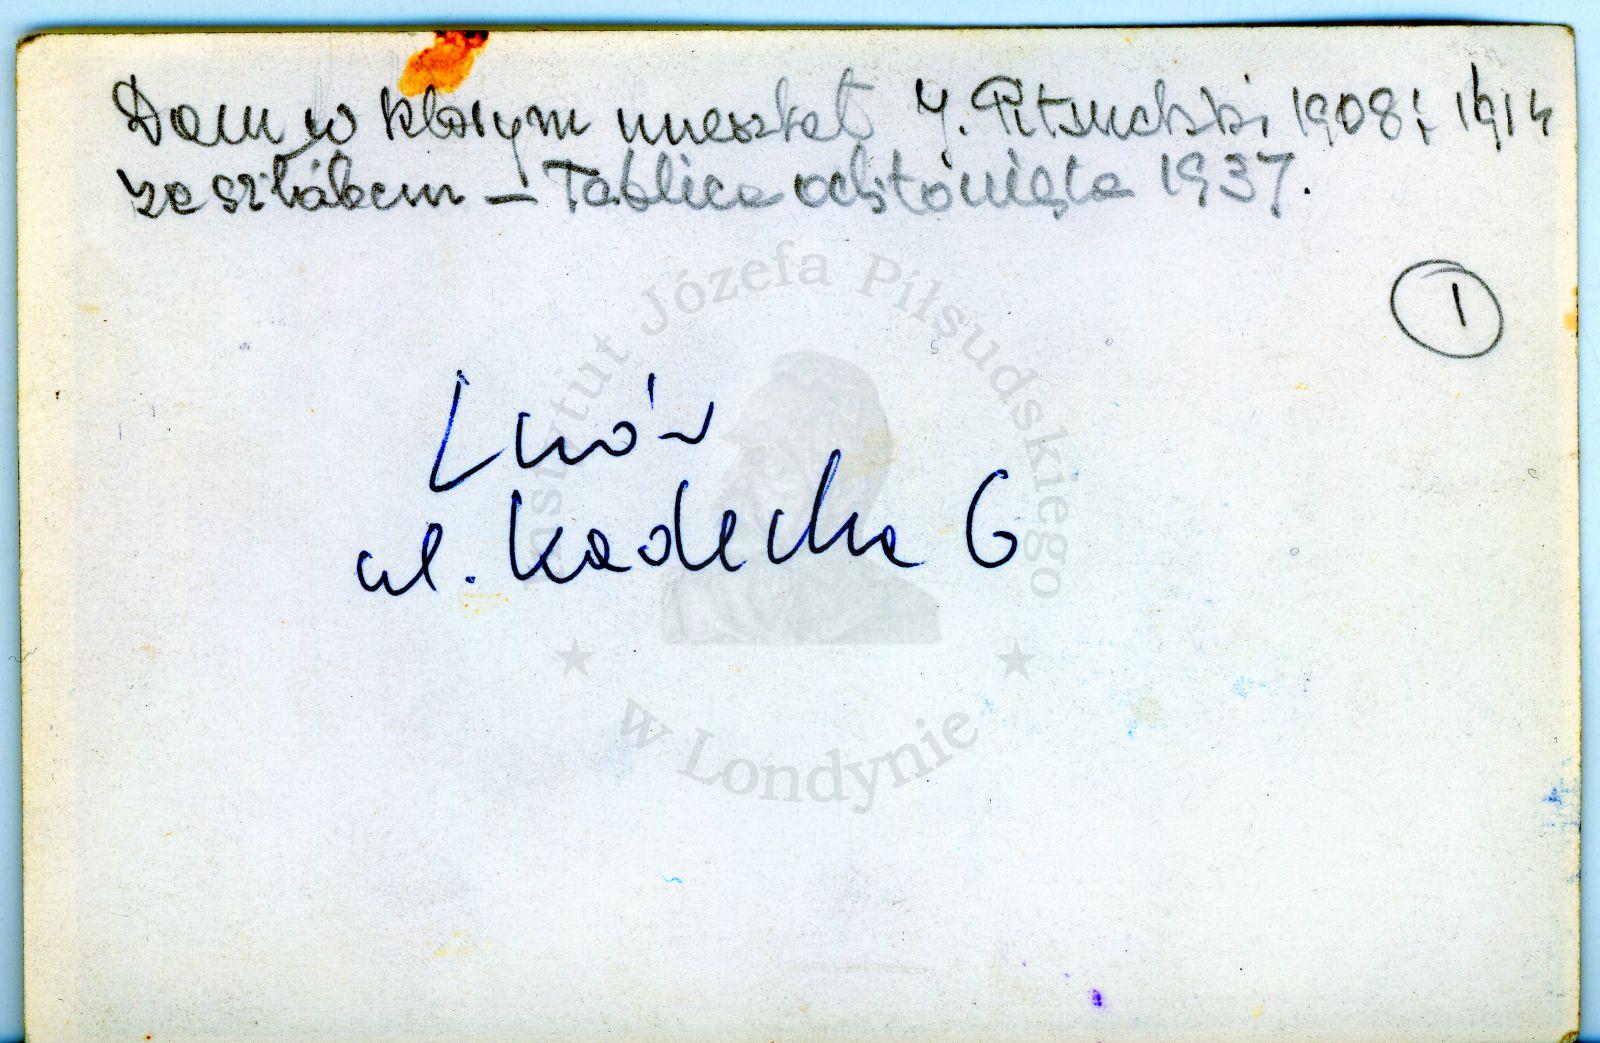 Dom w którym mieszkał J. Piłsudski 1908 i 1914
ze sztabem – Tablica odsłonięta 1937.
1
Lwów
ul. Kadecka 6
Instytut Józefa Piłsudskiego
★ w Londynie ★